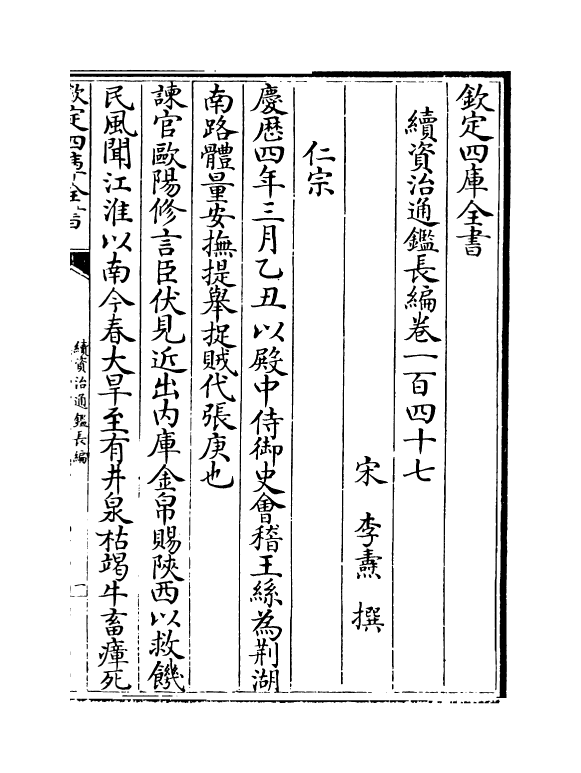 欽定四庫全書
續資治通鑑長編卷一百四十七
宋 李燾 撰
仁宗
慶歷四年三月乙丑以殿中侍御史會稽王絲為荆湖
南路體量安撫提舉捉賊代張庚也
諫官歐陽修言臣伏見近出内庫金帛賜陜西以救饑
民風聞江淮以南今春大旱至有井泉枯竭牛畜瘴死
欽定四庫全書
續資治通鑑長編